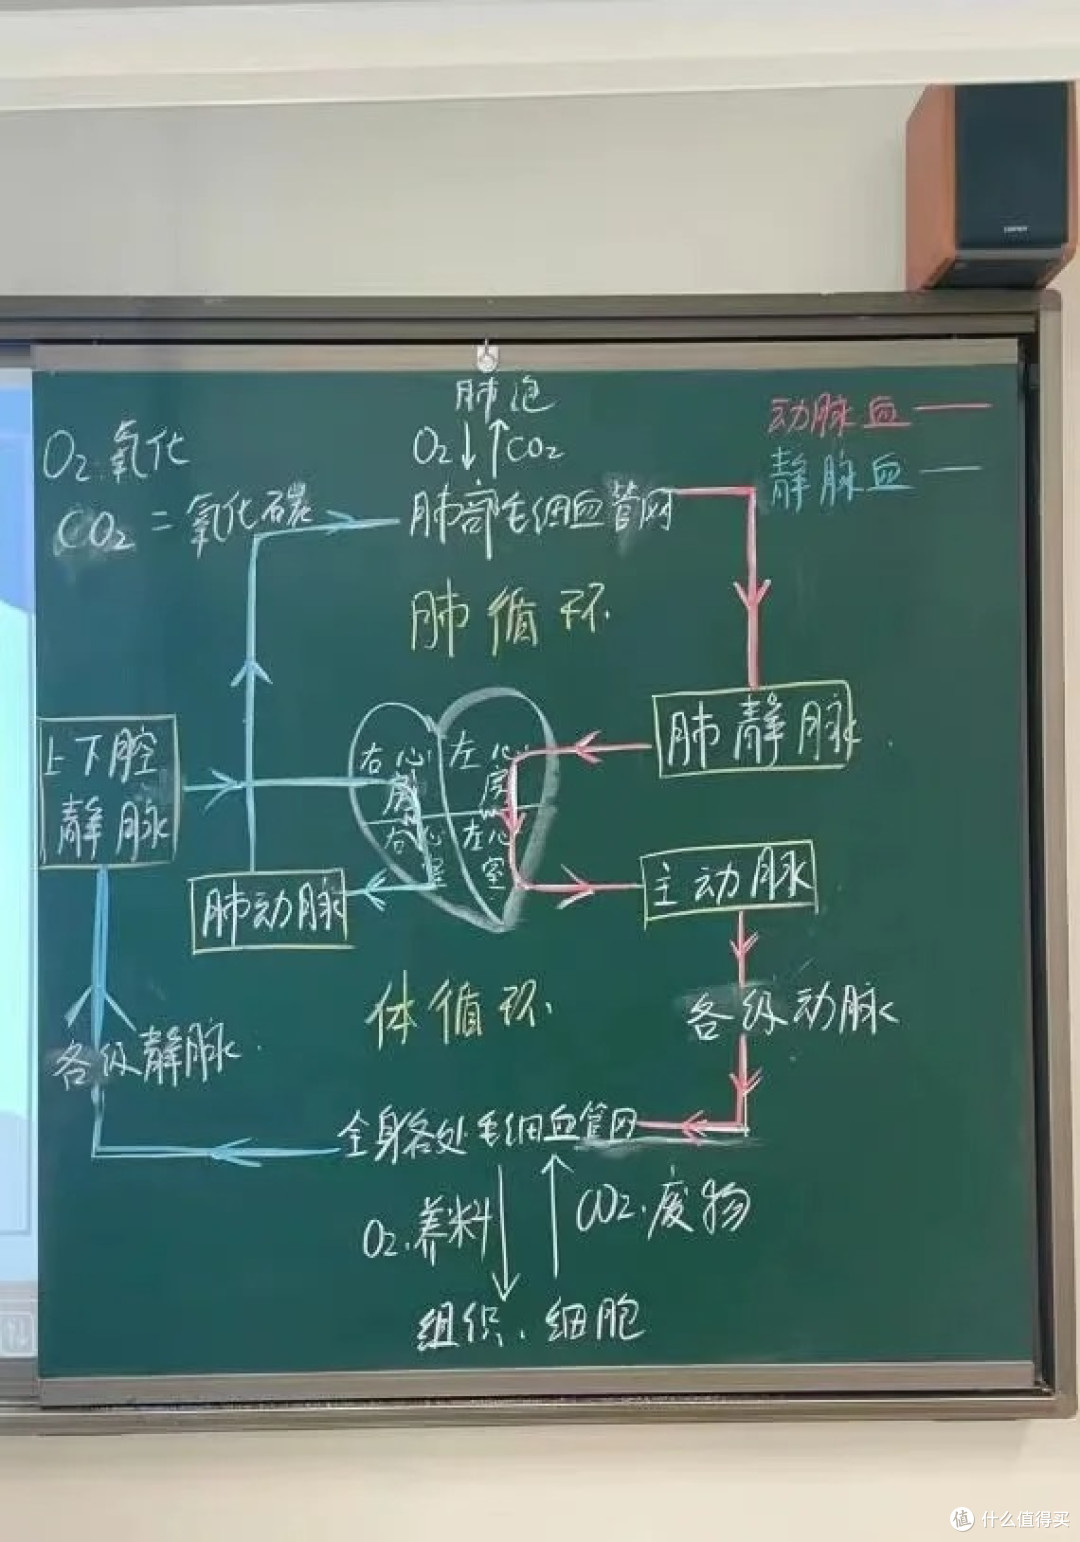 EDIFIER
肺泡
O₂ ↓ ↑ CO₂
动脉血
静脉血
O₂.氧化
CO₂ = 氧化碳
肺部毛细血管网
肺循环
上下腔
静脉
右心房
左心房
右心室
左心室
肺静脉
肺动脉
主动脉
体循环
各级动脉
各级静脉
全身各处毛细血管网
O₂.养料
CO₂.废物
组织、细胞
值 什么值得买